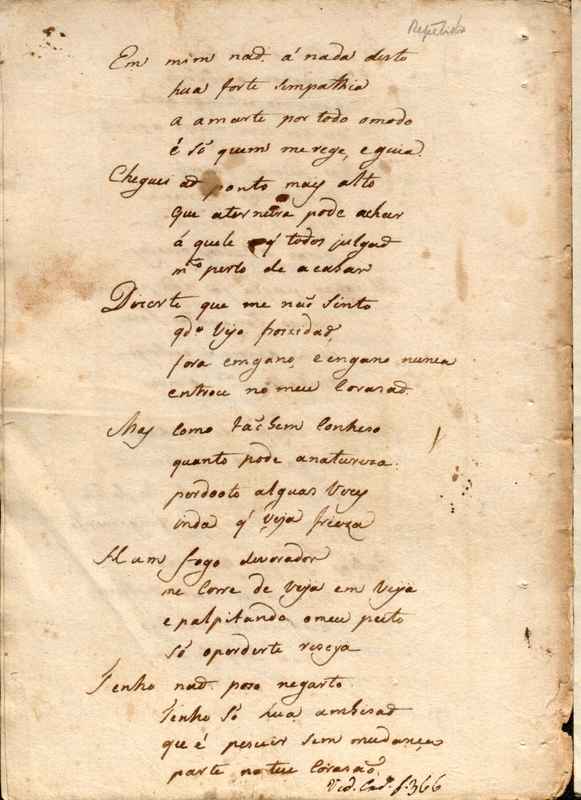 Repetido
Em mim nad. á nada disto
hua forte simpathia
a amarte por todo omodo
é só quem me rege, e guia.
Cheguei ao ponto mays alto
que aternura pode achar
á quele q' todos julgaõ
m.to perto de acabar
Dizerte que me naõ sinto
qd.o Vejo friezad,
fora emgano, e engano nunca
entrou no meu Corasaõ.
Mas como taõbem Conheso
quanto pode anatureza
perdooto alguas Vezes
inda q' Veja frieza
Hum fogo devorador
me Corre de Veja em Veja
e palpitando omeu peito
só operderte reseja
Tenho nad. poso negarto
Tenho só hua ambisaõ
que é pesuir sem mudança
parte noteu Corasaõ.
Vid. Cad. f. 366